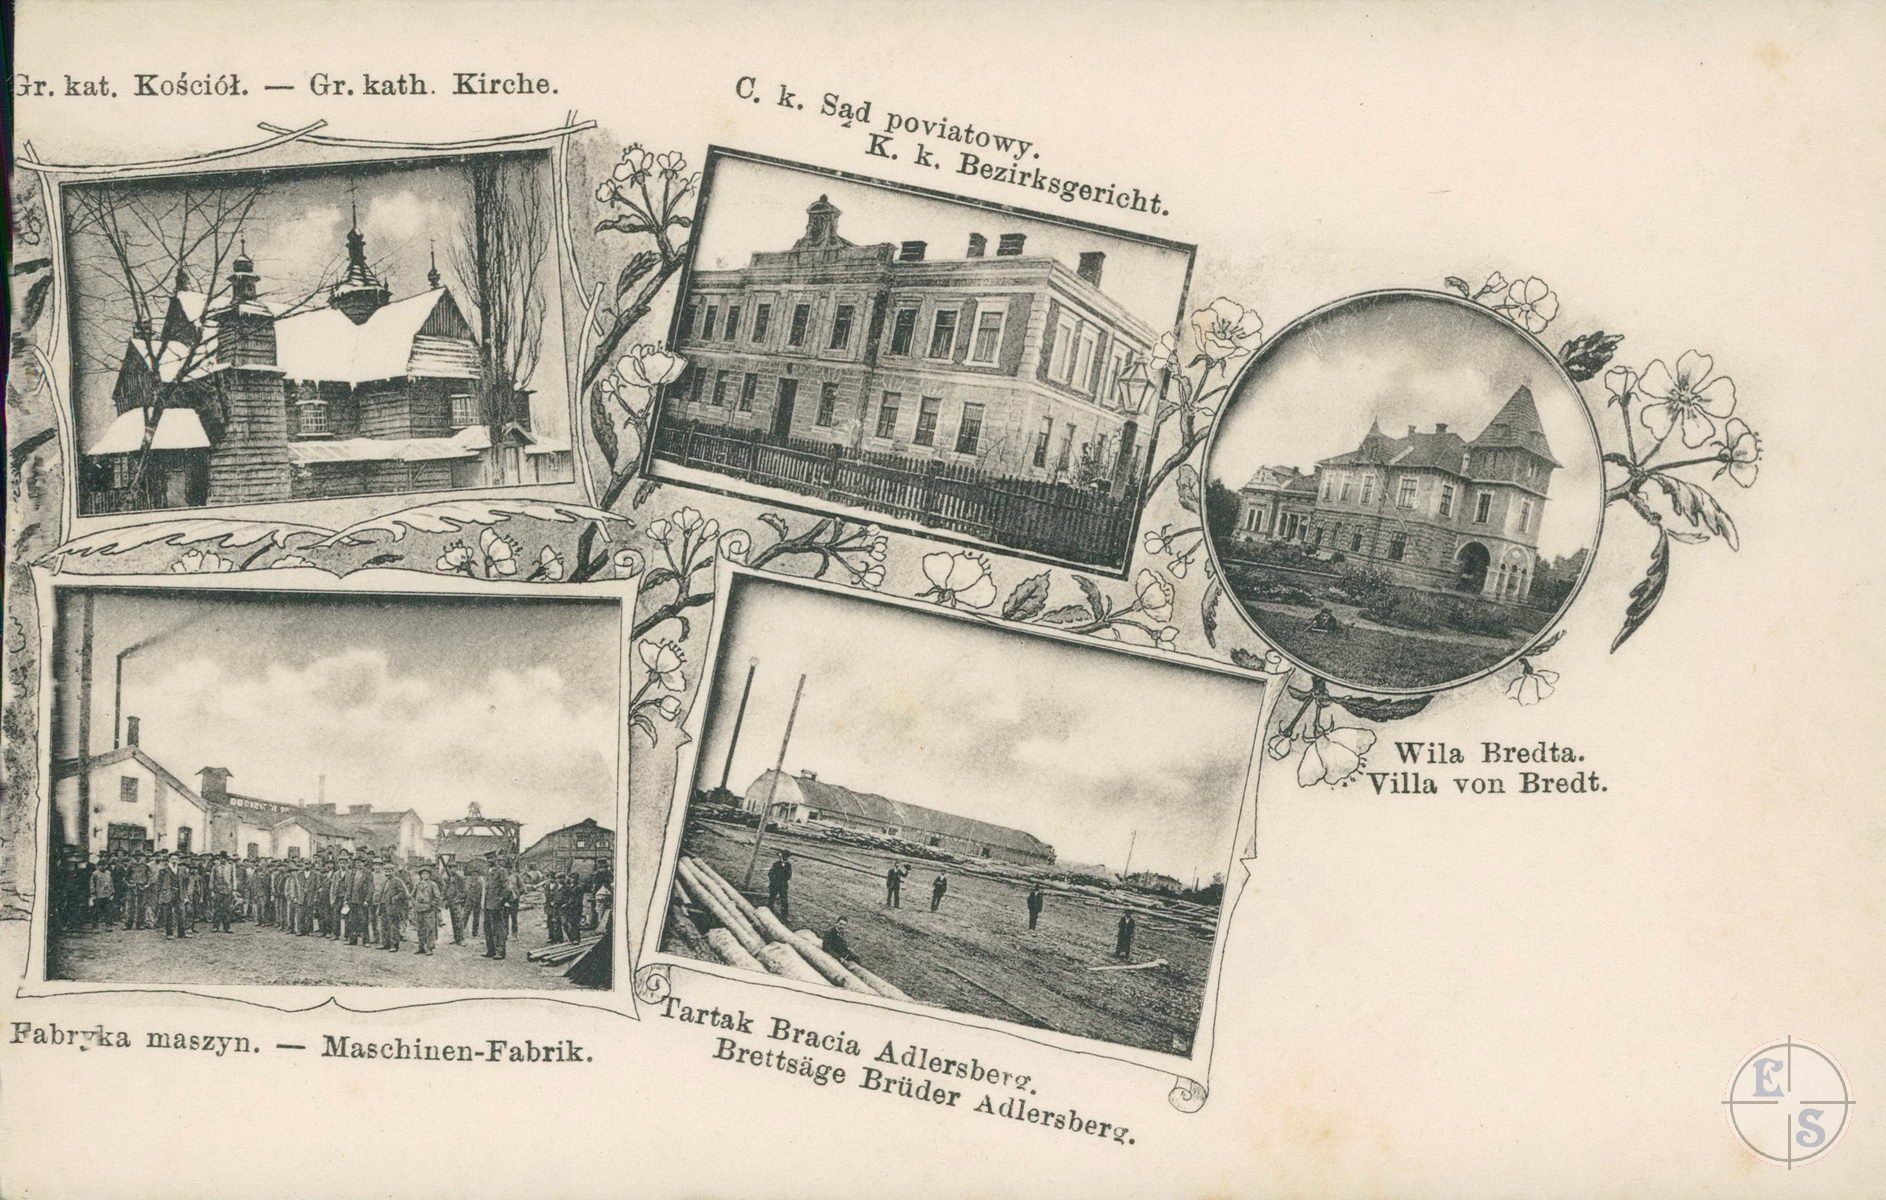 Gr. kat. Kościół. — Gr. kath. Kirche.
C. k. Sąd poviatowy.
K. k. Bezirksgericht.
Wila Bredta.
Villa von Bredt.
Fabryka maszyn. — Maschinen-Fabrik.
Tartak Bracia Adlersberg.
Brettsäge Brüder Adlersberg.
E
S